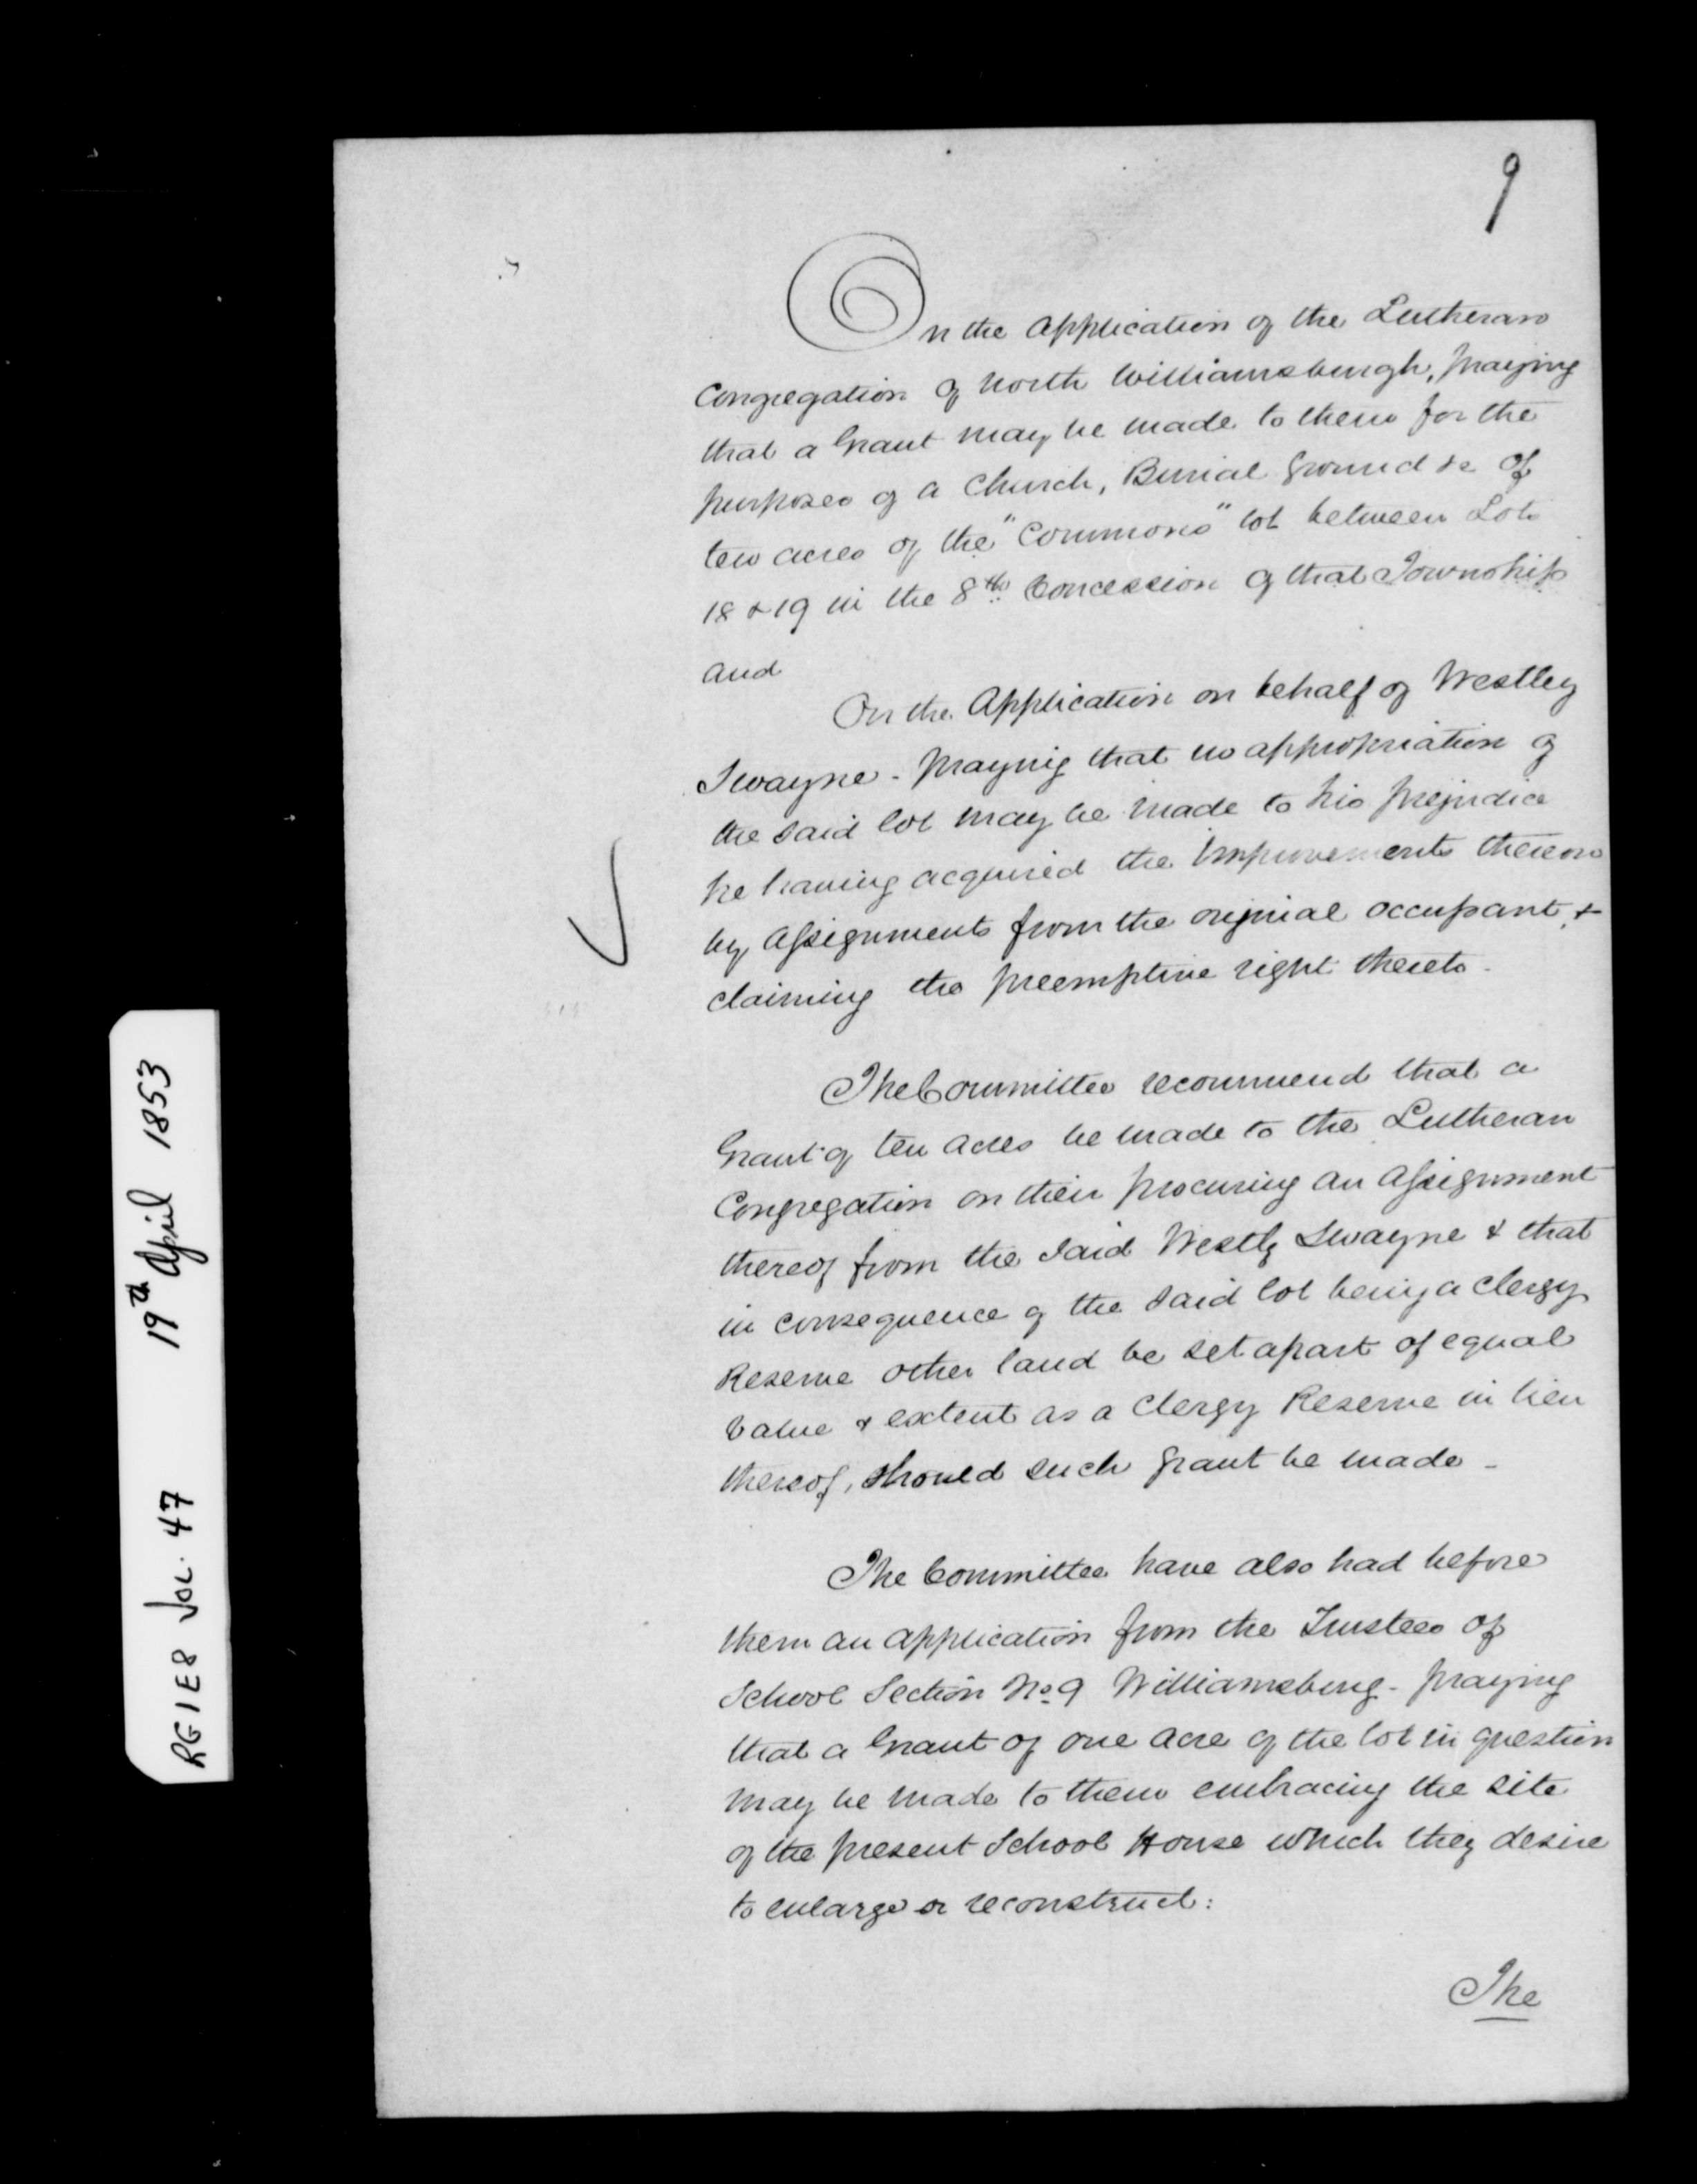 9
On the Application of the Lutheran
Congregation of North Williamsburgh, praying
that a Grant may be made to them for the
purposes of a Church, Burial Ground &c of
ten acres of the "Commons" lot between Lots
18 & 19 in the 8th Concession of that Township
and
On the Application on behalf of Westley
Swayne - praying that no appropriation of
the said lot may be made to his prejudice
he having acquired the Improvements thereon
by Assignments from the original occupant, &
claiming the preemptive right thereto -
The Committee recommend that a
Grant of ten acres be made to the Lutheran
Congregation on their procuring an Assignment
thereof from the said Westly Swayne & that
in consequence of the said lot being a Clergy
Reserve other land be set apart of equal
value & extent as a Clergy Reserve in lieu
thereof, should such grant be made -
The Committee have also had before
them an application from the Trustees of
School Section No. 9 Williamsburg - praying
that a Grant of one acre of the lot in question
may be made to them embracing the site
of the present School House which they desire
to enlarge or reconstruct:
The
RG1E8 Vol. 47 19th April 1853